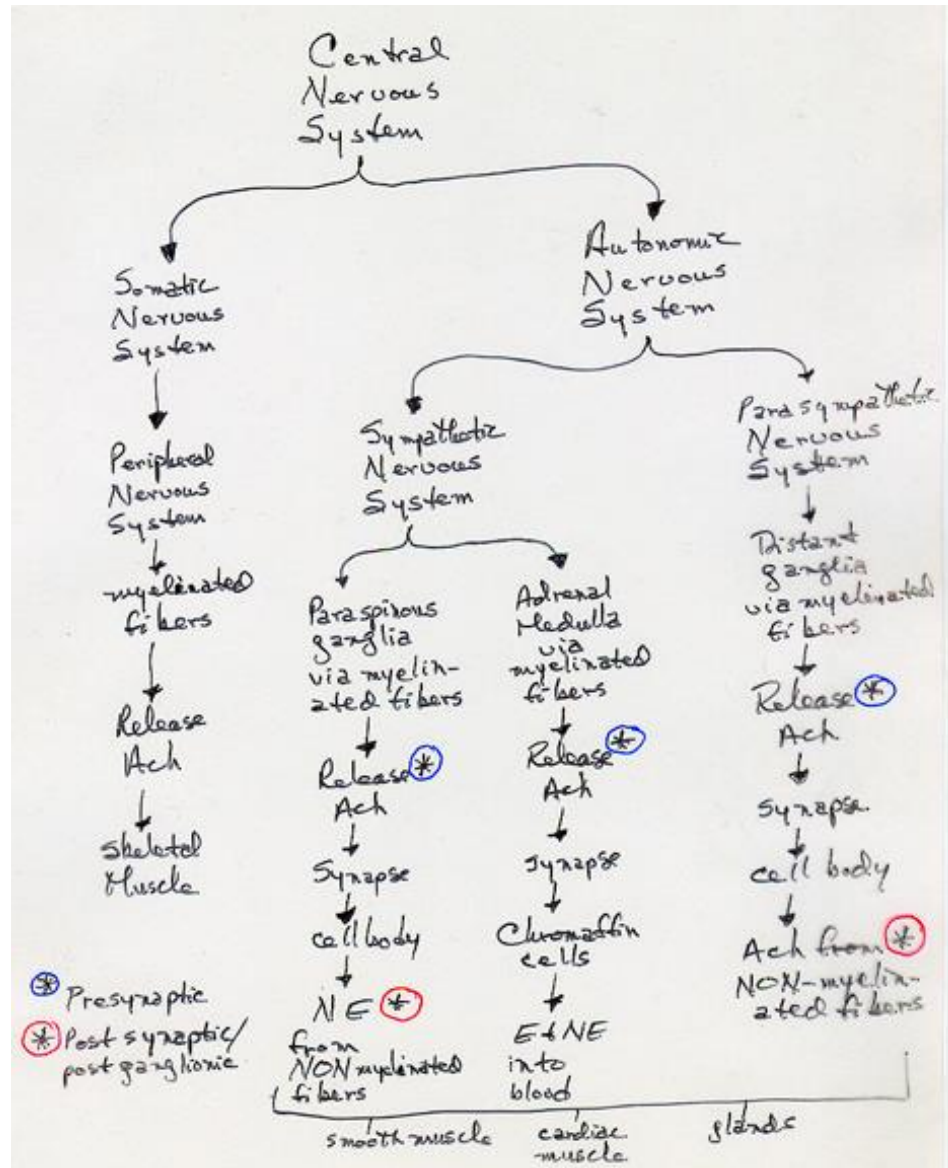 Central
Nervous
System
Somatic
Nervous
System
Peripheral
Nervous
System
myelinated
fibers
Release
Ach
Skeletal
Muscle
Autonomic
Nervous
System
Sympathetic
Nervous
System
Paraspinous
ganglia
via myelin-
ated fibers
Release *
Ach
Synapse
cell body
NE *
from
NON myelinated
fibers
Adrenal
Medulla
via
myelinated
fibers
Release *
Ach
synapse
Chromaffin
cells
E + NE
into
blood
Parasympathetic
Nervous
System
Distant
ganglia
via myelinated
fibers
Release *
Ach
Synapse
cell body
Ach from *
NON-myelin-
ated fibers
smooth muscle
cardiac
muscle
glands
* Presynaptic
* Post synaptic/
post ganglionic